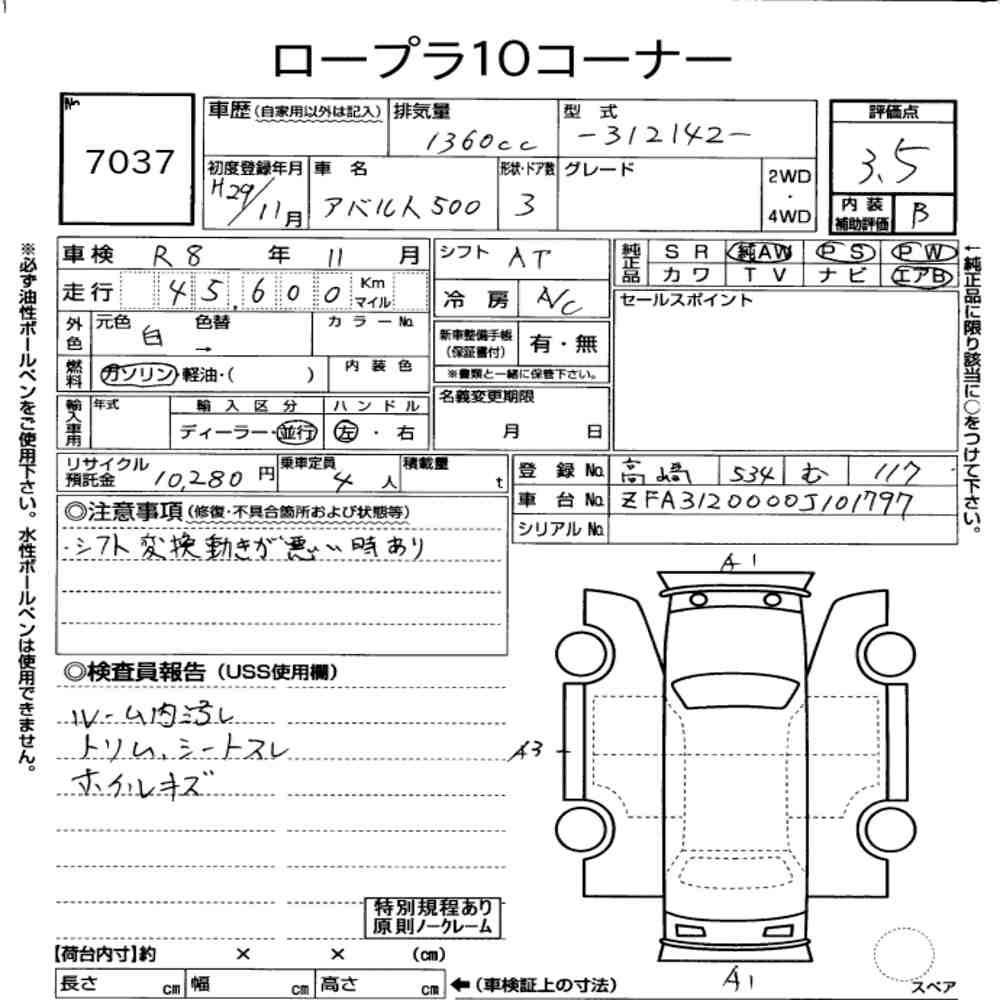 ロープラ10コーナー
No.
7037
車歴(自家用以外は記入)
排気量
1360cc
型式
-312142-
評価点
3.5
内装補助評価 B
初度登録年月
H29/11月
車名
アバルト500
形状・ドア数
3
グレード
2WD・4WD
車検 R8年11月
走行 45,600 Km マイル
外色 元色 白 色替 →
カラーNo.
燃料 ガソリン・軽油・( )
内装色
輸入車用 年式
輸入区分
ディーラー・並行
ハンドル
左・右
シフト AT
冷房 A/C
新車整備手帳(保証書付) 有・無
※書類と一緒に保管下さい。
名義変更期限
月 日
純正品 SR 純AW PS PW
カワ TV ナビ エアB
セールスポイント
←純正品に限り該当に○をつけて下さい。
リサイクル預託金 10,280円
乗車定員 4人
積載量 t
登録No. 高崎 534 む 117
車台No. ZFA3120000J101797
シリアルNo.
◎注意事項(修復・不具合箇所および状態等)
・シフト変換動きが悪い時あり
◎検査員報告(USS使用欄)
ルーム内汚レ
トリム、シートスレ
ホイルキズ
特別規程あり
原則ノークレーム
【荷台内寸】約 × × (cm)
長さ cm 幅 cm 高さ cm ←(車検証上の寸法)
A1
A3
A1
スペア
※必ず油性ボールペンをご使用下さい。水性ボールペンは使用できません。